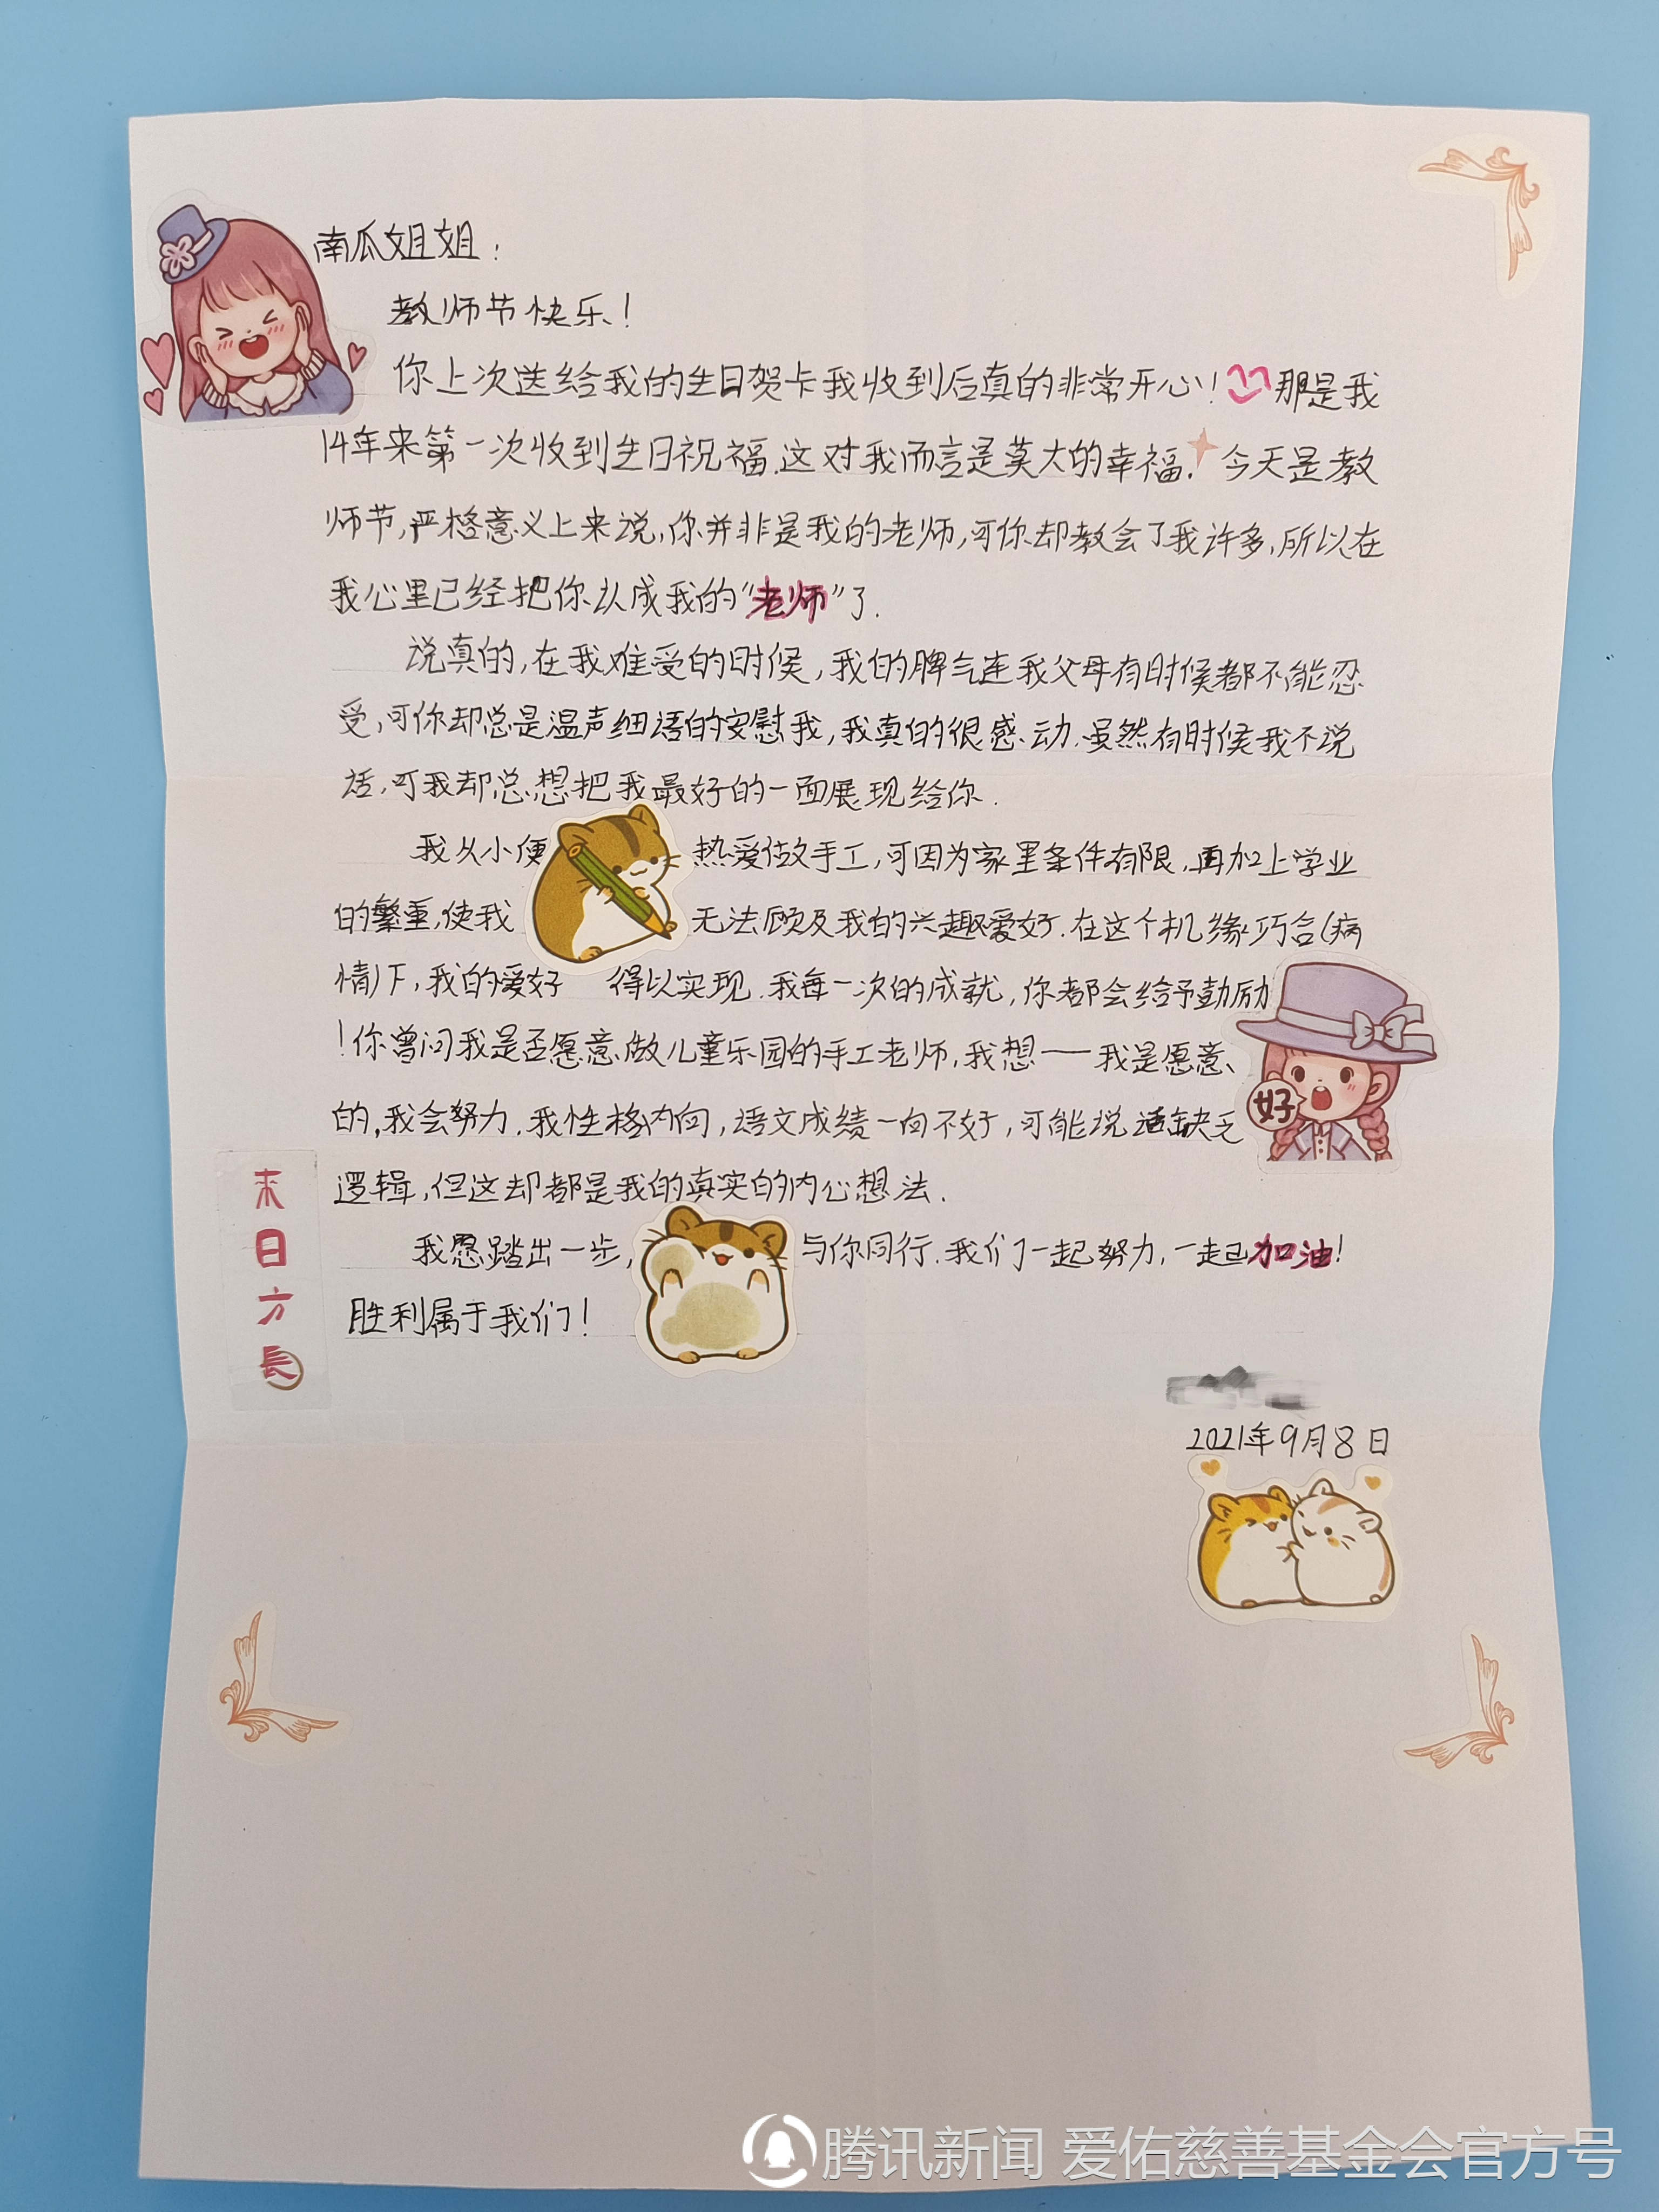 南瓜姐姐：
教师节快乐！
你上次送给我的生日贺卡我收到后真的非常开心！那是我
14年来第一次收到生日祝福.这对我而言是莫大的幸福.今天是教
师节,严格意义上来说,你并非是我的老师,可你却教会了我许多,所以在
我心里已经把你认成我的“老师”了.
说真的,在我难受的时候,我的脾气连我父母有时候都不能忍
受,可你却总是温声细语的安慰我,我真的很感动.虽然有时候我不说
话,可我却总想把我最好的一面展现给你.
我从小便热爱做手工,可因为家里条件有限,再加上学业
的繁重,使我无法顾及我的兴趣爱好.在这个机缘巧合(病
情)下,我的爱好得以实现.我每一次的成就,你都会给予鼓励
!你曾问我是否愿意做儿童乐园的手工老师,我想——我是愿意
的,我会努力.我性格内向,语文成绩一向不好,可能说话缺乏
逻辑,但这却都是我的真实的内心想法.
好
我愿踏出一步,与你同行.我们一起努力,一起加油!
胜利属于我们!
来日方長
2021年9月8日
腾讯新闻 爱佑慈善基金会官方号